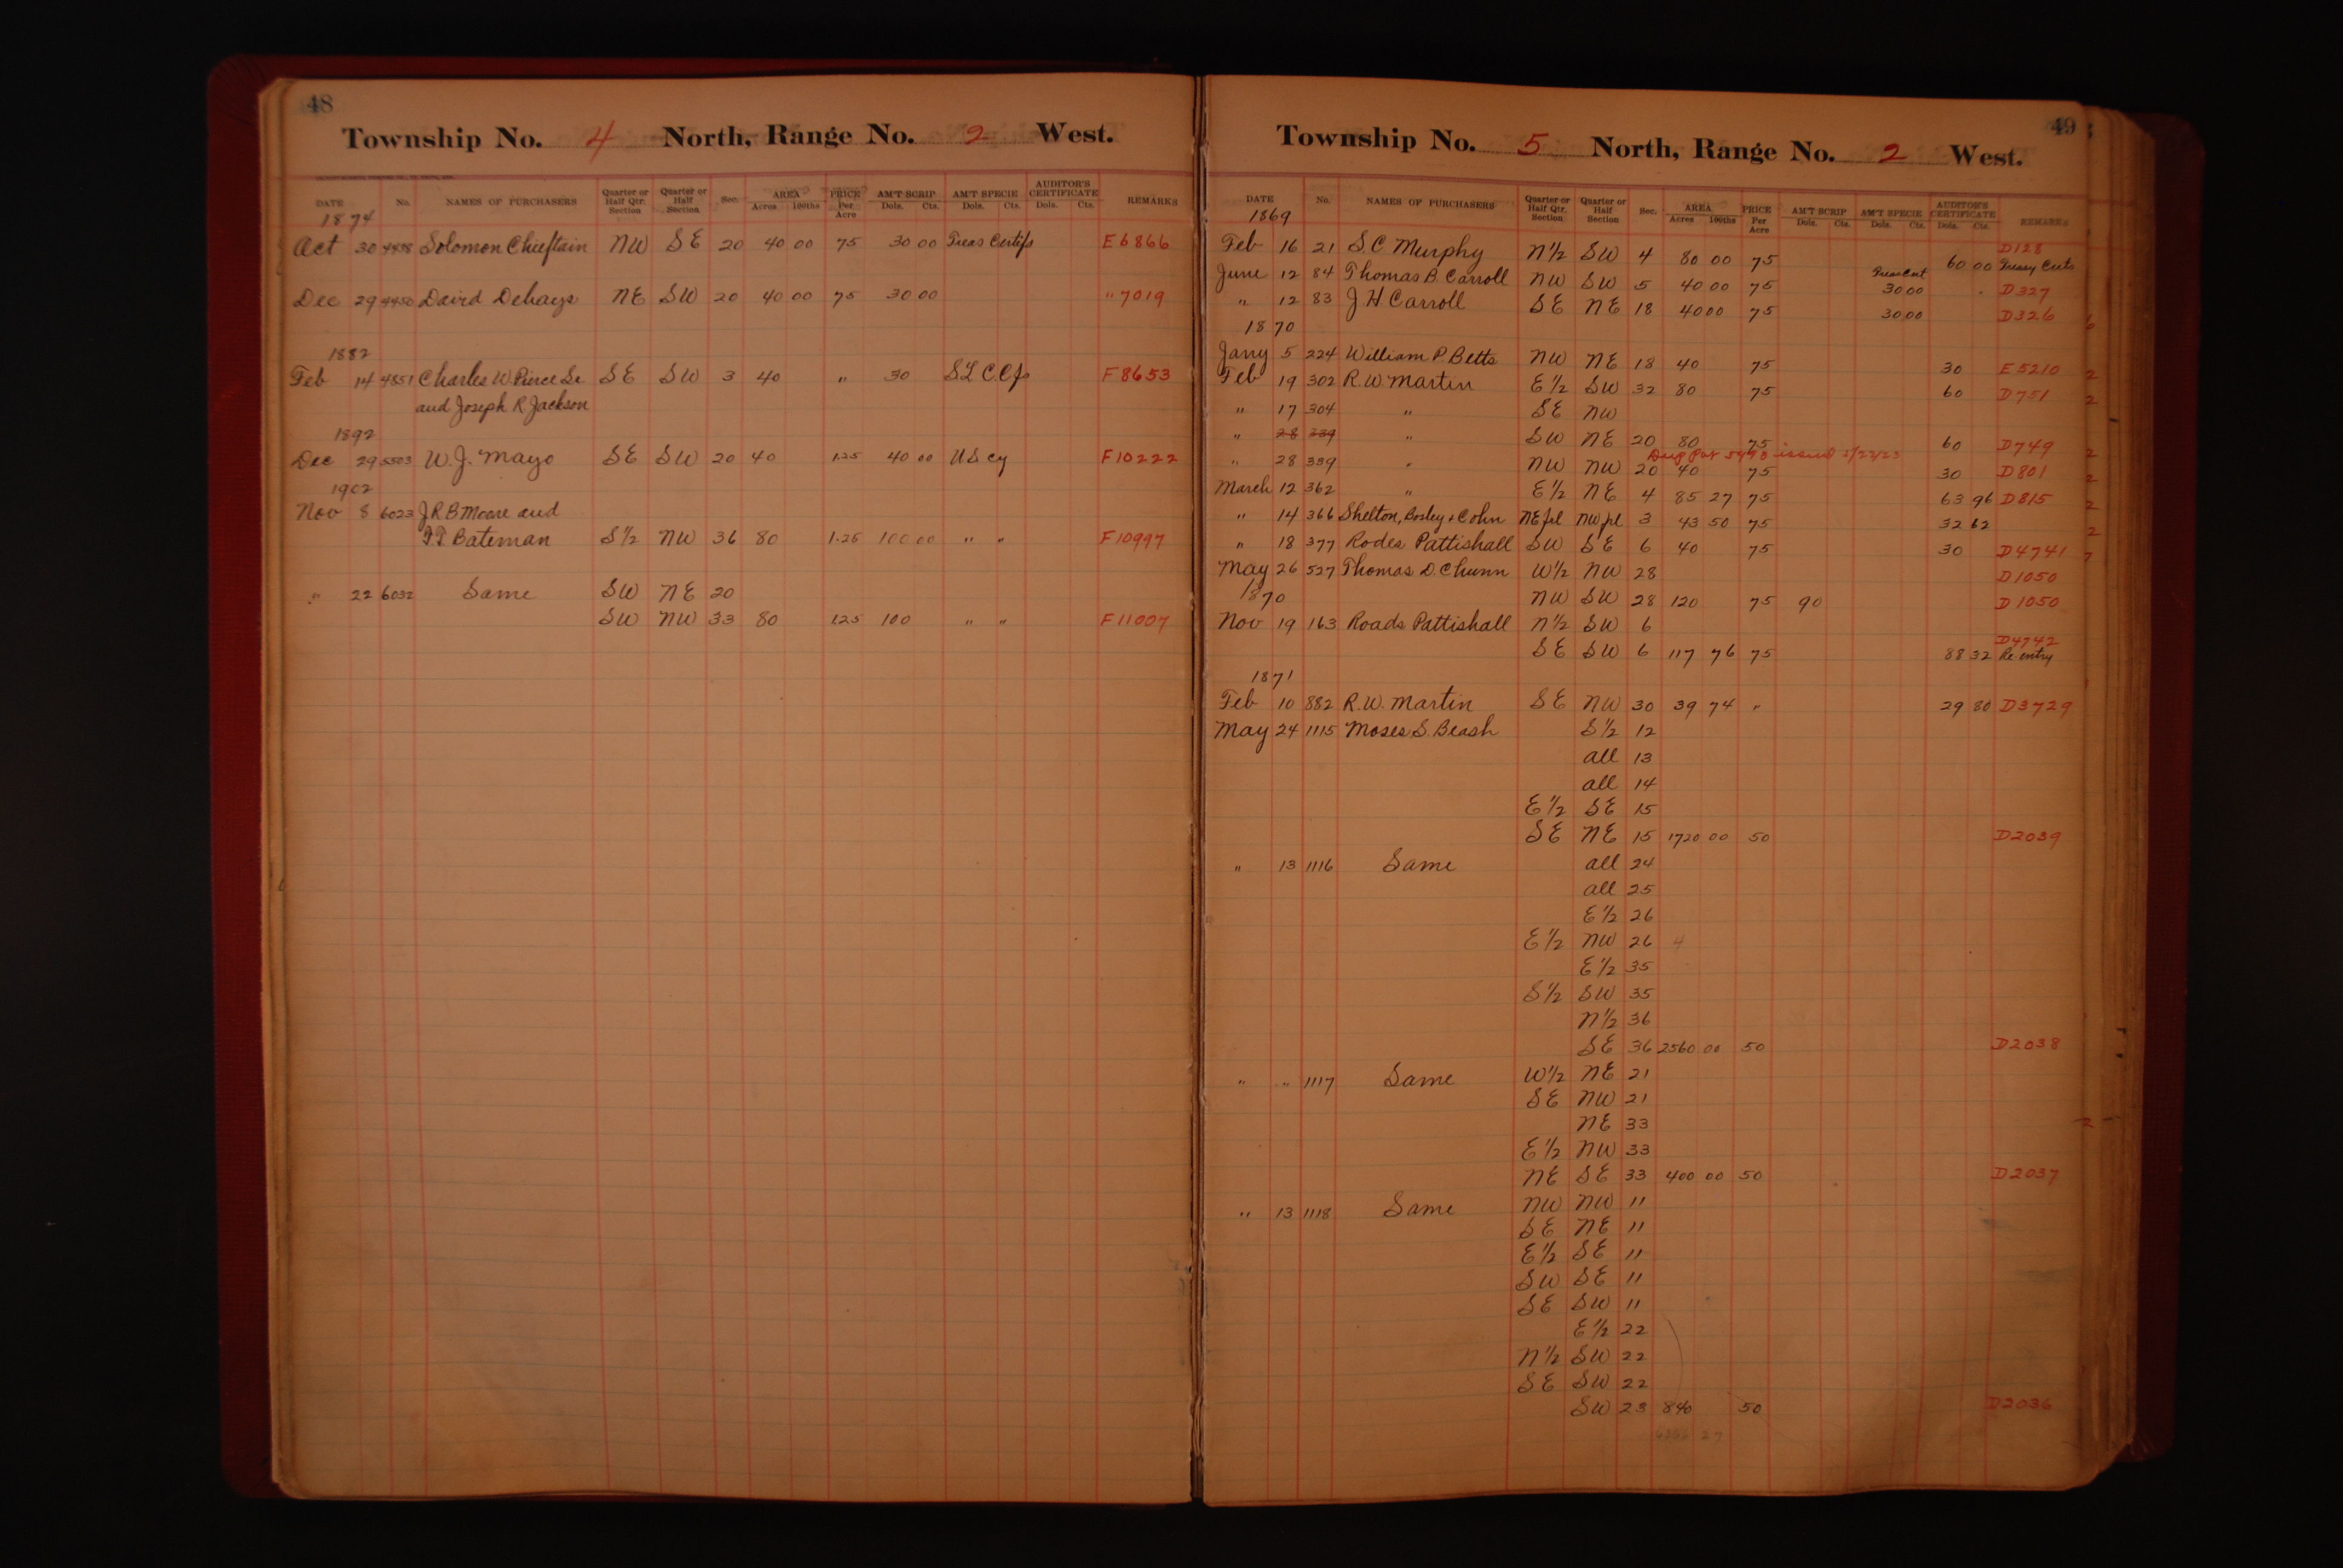 48
Township No. 4 North, Range No. 2 West.
DATE No. NAMES OF PURCHASERS Quarter or Half Qtr. Section Quarter or Half Section Sec. AREA Acres 100ths PRICE Per Acre AM'T SCRIP Dols. Cts. AM'T SPECIE Dols. Cts. AUDITOR'S CERTIFICATE Dols. Cts. REMARKS
1874
Oct 30 Solomon Chieftain NW SE 20 40 00 75 30 00 Treas Certifs E6866
Dec 29 4450 David Dehays NE SW 20 40 00 75 30 00 " 7019
1882
Feb 14 4851 Charles W Pierce Sr SE SW 3 40 " 30 F8653
and Joseph R Jackson
1892
Dec 29 5503 W. J. Mayo SE SW 20 40 1.25 40 00 US cy F10222
1902
Nov 8 6023 J R B Moore and
F. T. Bateman S½ NW 36 80 1.25 100 00 " " F10997
" 22 6032 Same SW NE 20
SW NW 33 80 1.25 100 " " F11007
49
Township No. 5 North, Range No. 2 West.
DATE No. NAMES OF PURCHASERS Quarter or Half Qtr. Section Quarter or Half Section Sec. AREA Acres 100ths PRICE Per Acre AM'T SCRIP Dols. Cts. AM'T SPECIE Dols. Cts. AUDITOR'S CERTIFICATE Dols. Cts. REMARKS
1869
D128
Feb 16 21 S C Murphy N½ SW 4 80 00 75 60 00 Treasy Certs
June 12 84 Thomas B Carroll NW SW 5 40 00 75 Treas Cert 30 00 D327
" 12 83 J H Carroll SE NE 18 40 00 75 30 00 D326
1870
Jany 5 224 William P Betts NW NE 18 40 75 30 E5210
Feb 19 302 R. W. Martin E½ SW 32 80 75 60 D751
" 17 304 " SE NW
" 28 339 " SW NE 20 80 75 60 D749
Dup Pat 5498 issued 5/22/23
" 28 339 " NW NW 20 40 75 30 D801
March 12 362 " E½ NE 4 85 27 75 63 96 D815
" 14 366 Shelton, Bosley & Cohn NE fcl NW fcl 3 43 50 75 32 62
" 18 377 Rodes Pattishall SW SE 6 40 75 30 D4741
May 26 527 Thomas D. Chunn W½ NW 28 D1050
1870 NW SW 28 120 75 90 D1050
Nov 19 163 Roads Pattishall N½ SW 6
D4742
SE SW 6 117 76 75 88 32 Re entry
1871
Feb 10 882 R. W. Martin SE NW 30 39 74 " 29 80 D3729
May 24 1115 Moses S. Beash S½ 12
all 13
all 14
E½ SE 15
SE NE 15 1720 00 50 D2039
" 13 1116 Same all 24
all 25
E½ 26
E½ NW 26 4
E½ 35
S½ SW 35
N½ 36
SE 36 2560 00 50 D2038
" " 1117 Same W½ NE 21
SE NW 21
NE 33
E½ NW 33
NE SE 33 400 00 50 D2037
" 13 1118 Same NW NW 11
SE NE 11
E½ SE 11
SW SE 11
SE SW 11
E½ 22
N½ SW 22
SE SW 22
SW 23 840 50 D2036